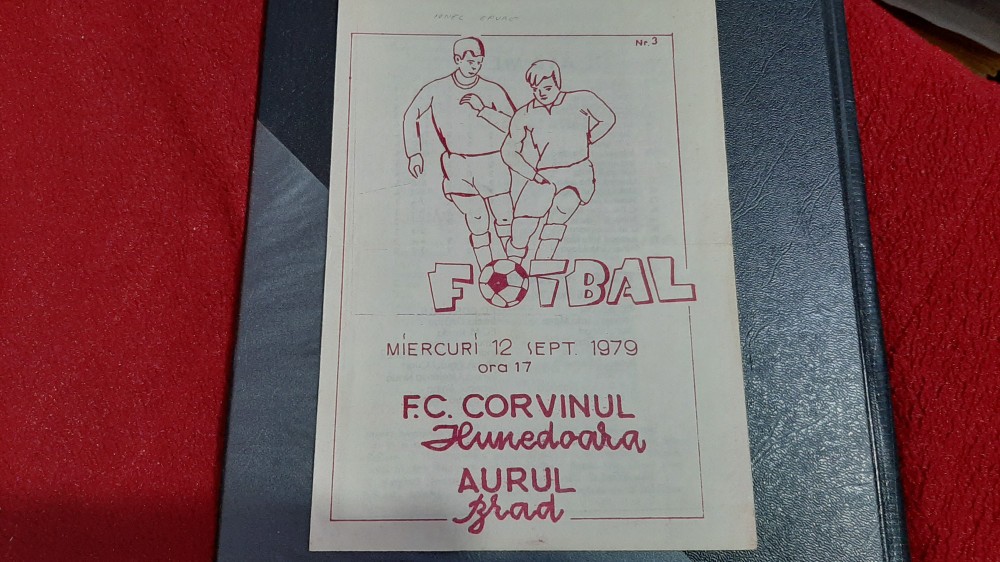 Nr. 3
FOTBAL
MIERCURI 12 SEPT. 1979
ora 17
F.C. CORVINUL
Hunedoara
AURUL
Brad